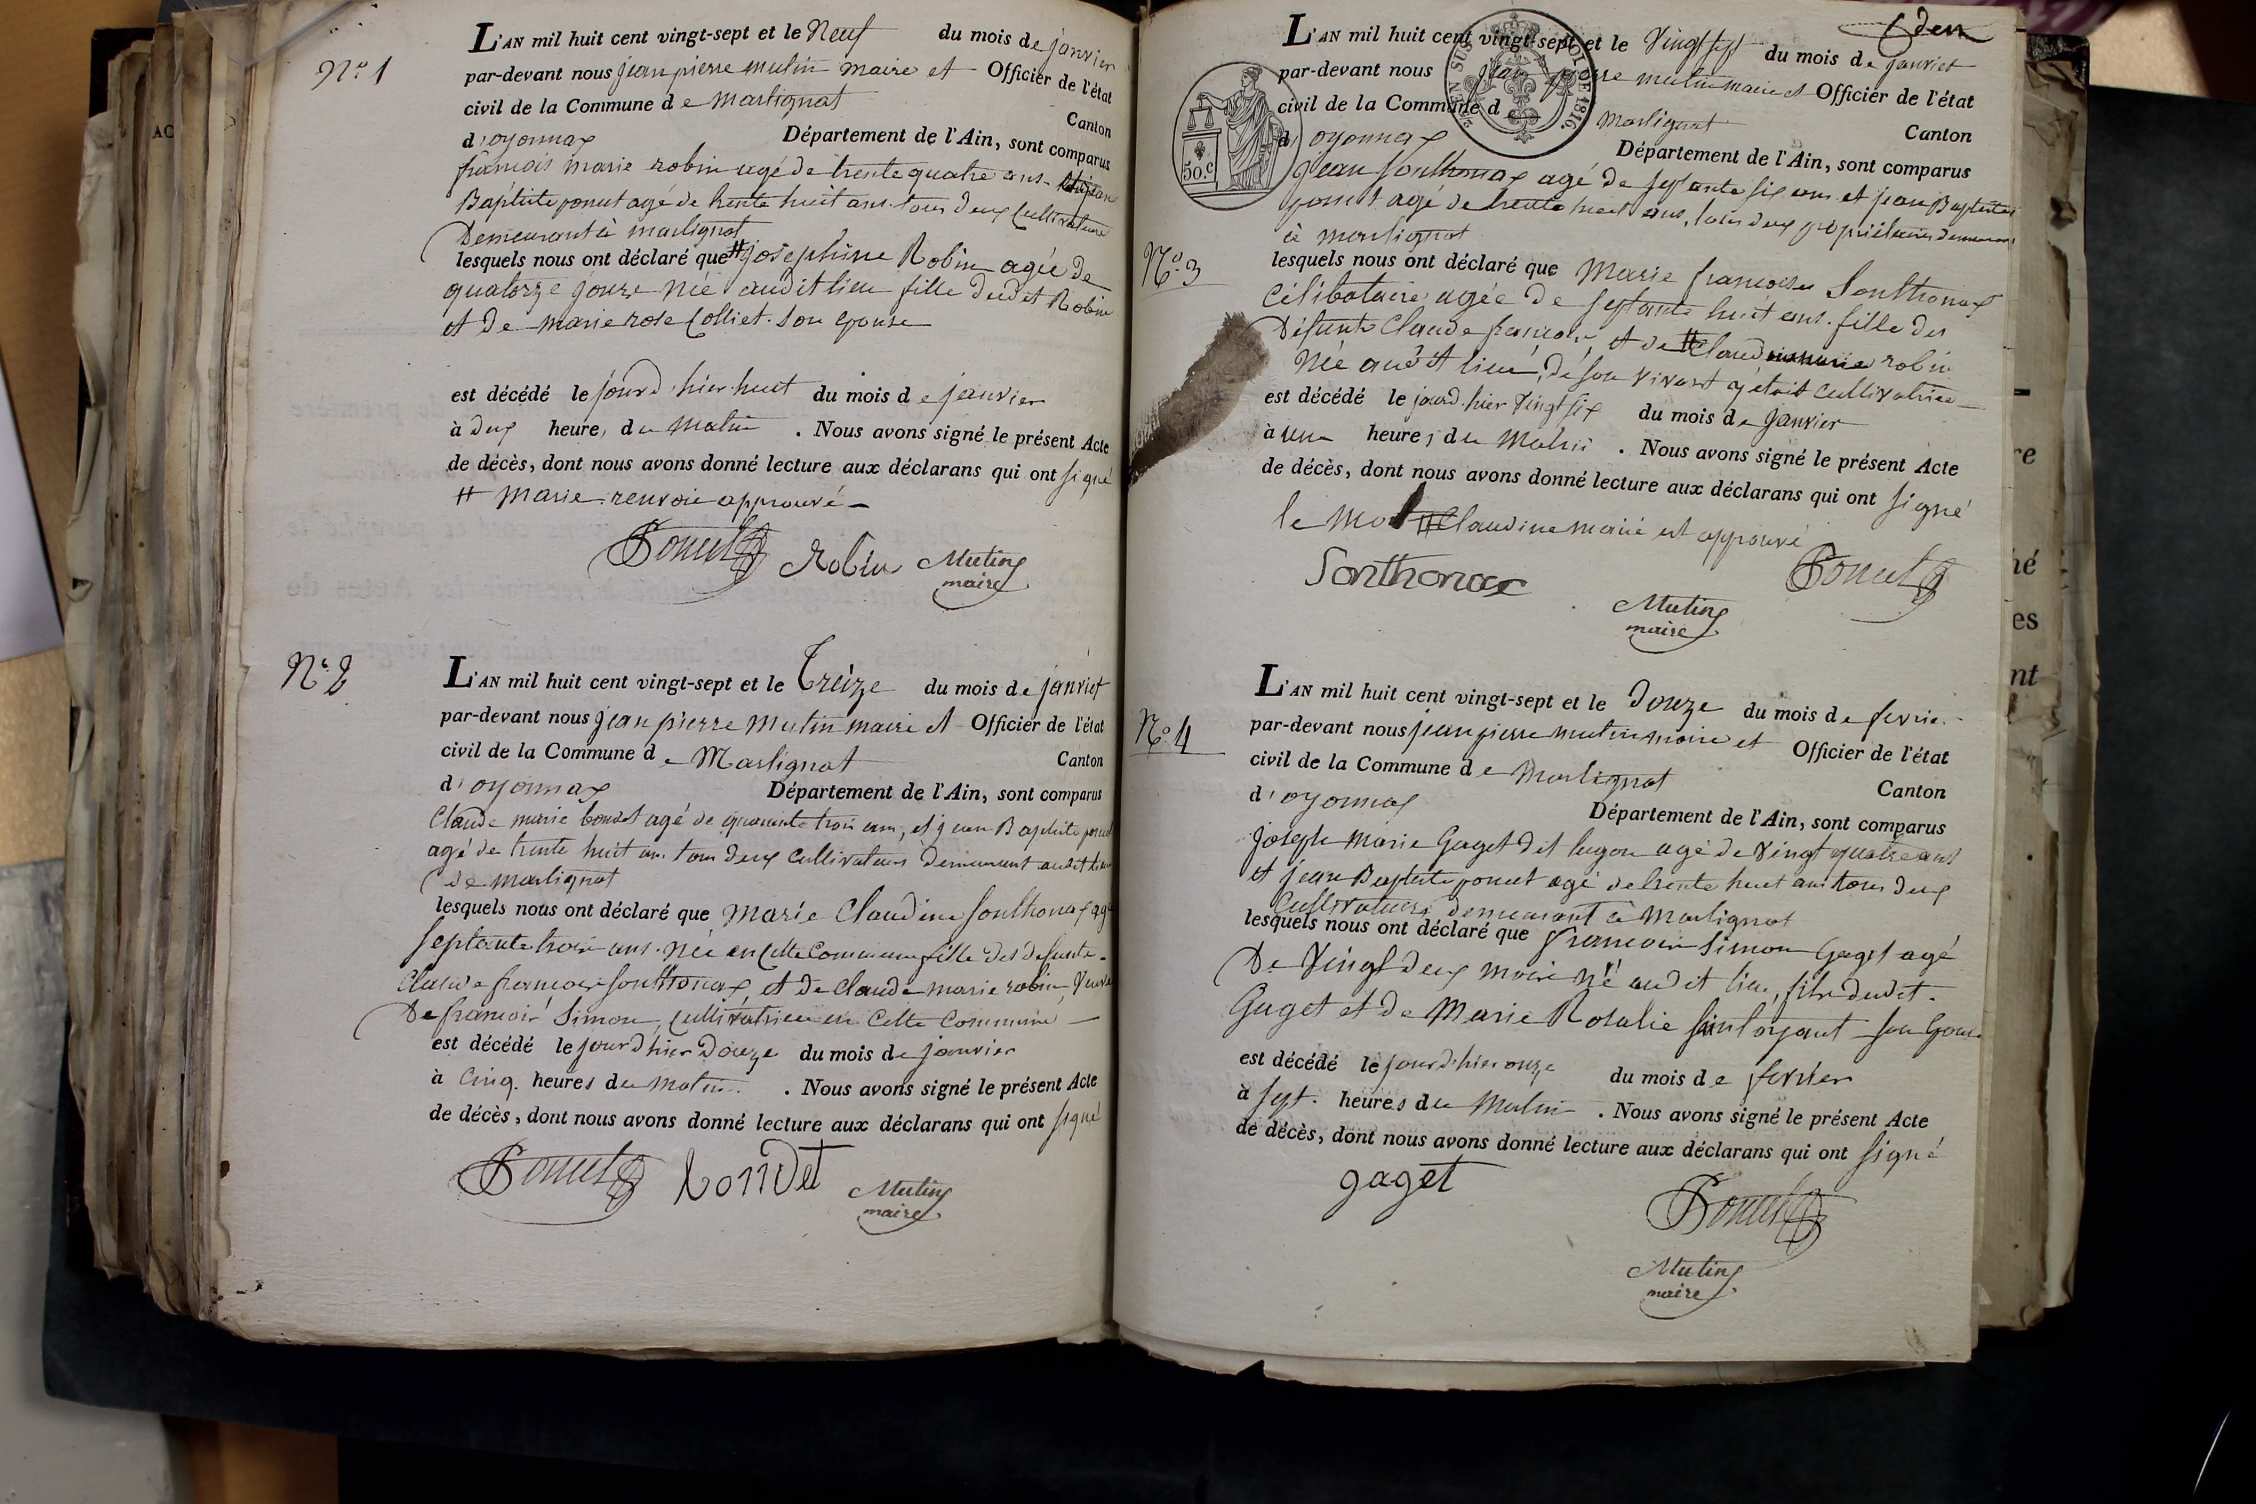 N.º 1
L'AN mil huit cent vingt-sept et le Neuf du mois de janvier
par-devant nous jean pierre mutin maire et Officier de l'état
civil de la Commune de Martignat Canton
d'oyonnax Département de l'Ain, sont comparus
francois marie robin agé de trente quatre ans jean
Baptiste poncet agé de trente huit ans tous deux Cultivateurs
Demeurant à martignat
lesquels nous ont déclaré que # josephine Robin agée de
quatorze jours née audit lieu fille dudit Robin
et De marie rose Colliet son epouse
est décédé le jourd'hier huit du mois de janvier
à deux heures du Matin . Nous avons signé le présent Acte
de décès, dont nous avons donné lecture aux déclarans qui ont signé
# Marie renvoie approuvé
Poncet Robin Mutin
maire
N.º 2
L'AN mil huit cent vingt-sept et le Treize du mois de janvier
par-devant nous jean pierre Mutin maire et Officier de l'état
civil de la Commune de Martignat Canton
d'oyonnax Département de l'Ain, sont comparus
Claude marie bondet agé de quarante trois ans, et jean Baptiste poncet
agé de trente huit ans tous deux Cultivateurs demeurant audit lieu
de martignat
lesquels nous ont déclaré que Marie Claudine Sonthonax agée
Septante trois ans née en Cette Commune fille des defunts
Claude francois Sonthonax et de Claude marie robin, Veuve
De francois Simon, Cultivatrice en Cette Commune
est décédé le jourd'hier Douze du mois de janvier
à Cinq heures du Matin . Nous avons signé le présent Acte
de décès, dont nous avons donné lecture aux déclarans qui ont signé
Poncet bondet Mutin
maire
6 den
L'AN mil huit cent vingt-sept et le Vingt sept du mois de janvier
par-devant nous jean pierre mutin maire et Officier de l'état
civil de la Commune de Martignat Canton
d'oyonnax Département de l'Ain, sont comparus
LOI DE 1816.
EN SUS
50.c
jean Sonthonax agé de septante six ans et jean Baptiste
poncet agé de trente huit ans, tous deux propriétaires demeurant
à martignat
N.º 3
lesquels nous ont déclaré que Marie francoise Sonthonax
Célibataire agée de septante huit ans fille des
Défunts Claude francois, et de # Claudine marie robin
Née audit lieu, de son vivant étoit Cultivatrice
est décédé le jourd'hier Vingt six du mois de janvier
à une heures du Matin . Nous avons signé le présent Acte
de décès, dont nous avons donné lecture aux déclarans qui ont signé
le mot # Claudine marie est approuvé
Sonthonax Poncet
Mutin
maire
N.º 4
L'AN mil huit cent vingt-sept et le Douze du mois de fevrier
par-devant nous jean pierre mutin maire et Officier de l'état
civil de la Commune de Martignat Canton
d'oyonnax Département de l'Ain, sont comparus
joseph Marie Gaget dit lugon agé de Vingt quatre ans
et jean Baptiste poncet agé de trente huit ans tous deux
Cultivateurs demeurant à Martignat
lesquels nous ont déclaré que francois Simon Gaget agé
De Vingt deux mois né audit lieu, fils dudit
Gaget et de Marie Rosalie Sintoyant son Epouse
est décédé le jourd'hier onze du mois de fevrier
à sept heures du Matin . Nous avons signé le présent Acte
de décès, dont nous avons donné lecture aux déclarans qui ont signé
gaget
Poncet
Mutin
maire